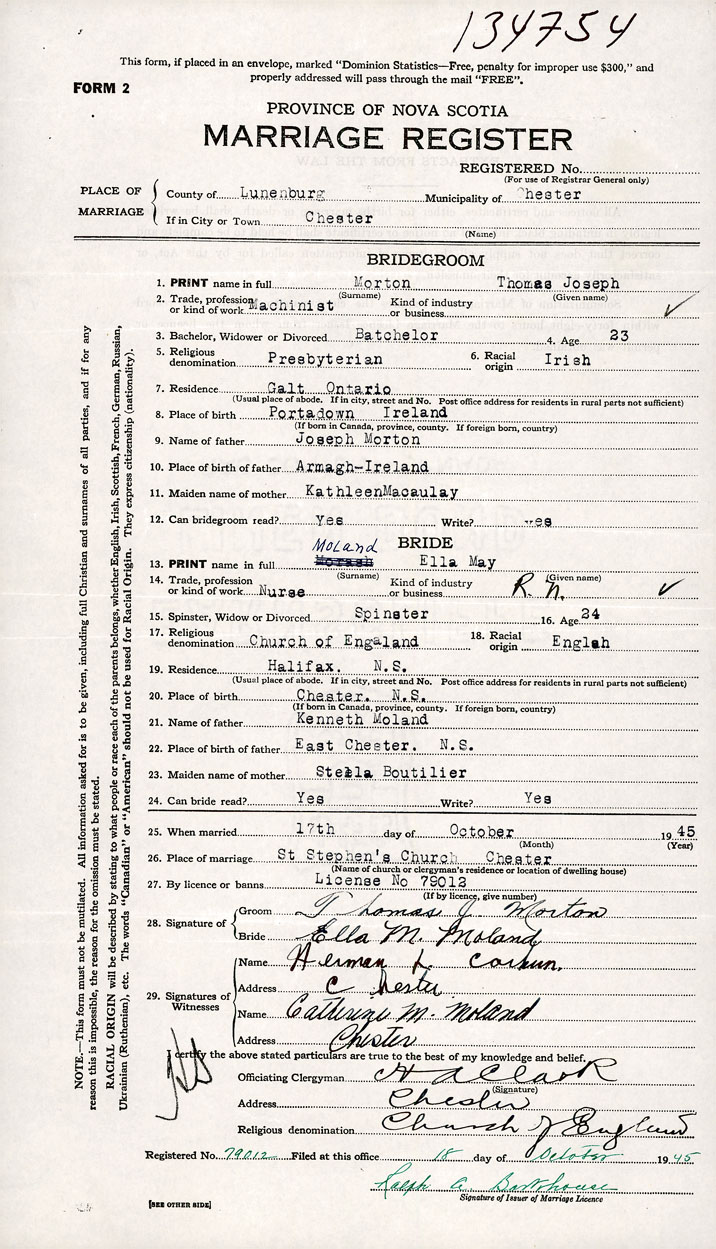 134754
This form, if placed in an envelope, marked "Dominion Statistics—Free, penalty for improper use $300," and
properly addressed will pass through the mail "FREE".
FORM 2
PROVINCE OF NOVA SCOTIA
MARRIAGE REGISTER
REGISTERED No.
(For use of Registrar General only)
PLACE OF MARRIAGE
County of Lunenburg Municipality of Chester
If in City or Town Chester
(Name)
BRIDEGROOM
1. PRINT name in full Morton Thomas Joseph
(Surname) (Given name)
2. Trade, profession or kind of work Machinist Kind of industry or business ✓
3. Bachelor, Widower or Divorced Batchelor 4. Age 23
5. Religious denomination Presbyterian 6. Racial origin Irish
7. Residence Galt Ontario
(Usual place of abode. If in city, street and No. Post office address for residents in rural parts not sufficient)
8. Place of birth Portadown Ireland
(If born in Canada, province, county. If foreign born, country)
9. Name of father Joseph Morton
10. Place of birth of father Armagh-Ireland
11. Maiden name of mother KathleenMacaulay
12. Can bridegroom read? Yes Write? yes
BRIDE
Moland
13. PRINT name in full Morash Ella May
(Surname) (Given name)
14. Trade, profession or kind of work Nurse Kind of industry or business R. N. ✓
15. Spinster, Widow or Divorced Spinster 16. Age 24
17. Religious denomination Church of Engaland 18. Racial origin Englsh
19. Residence Halifax. N.S.
(Usual place of abode. If in city, street and No. Post office address for residents in rural parts not sufficient)
20. Place of birth Chester. N.S.
(If born in Canada, province, county. If foreign born, country)
21. Name of father Kenneth Moland
22. Place of birth of father East Chester. N.S.
23. Maiden name of mother Stella Boutilier
24. Can bride read? Yes Write? Yes
25. When married 17th day of October 1945
(Month) (Year)
26. Place of marriage St Stephen's Church Chester
(Name of church or clergyman's residence or location of dwelling house)
27. By licence or banns License No 79012
(If by licence, give number)
28. Signature of
Groom Thomas J. Morton
Bride Ella M. Moland
29. Signatures of Witnesses
Name Herman L. Corkum.
Address Chester
Name Catherine M. Moland
Address Chester
I certify the above stated particulars are true to the best of my knowledge and belief.
Officiating Clergyman H A Clark
(Signature)
Address Chester
Religious denomination Church of England
Registered No. 79012 Filed at this office 18 day of October 1945
Ralph A. Barkhouse
Signature of Issuer of Marriage Licence
[SEE OTHER SIDE]
NOTE.—This form must not be mutilated. All information asked for is to be given, including full Christian and surnames of all parties, and if for any
reason this is impossible, the reason for the omission must be stated.
RACIAL ORIGIN will be described by stating to what people or race each of the parents belongs, whether English, Irish, Scottish, French, German, Russian,
Ukrainian (Ruthenian), etc. The words "Canadian" or "American" should not be used for Racial Origin. They express citizenship (nationality).